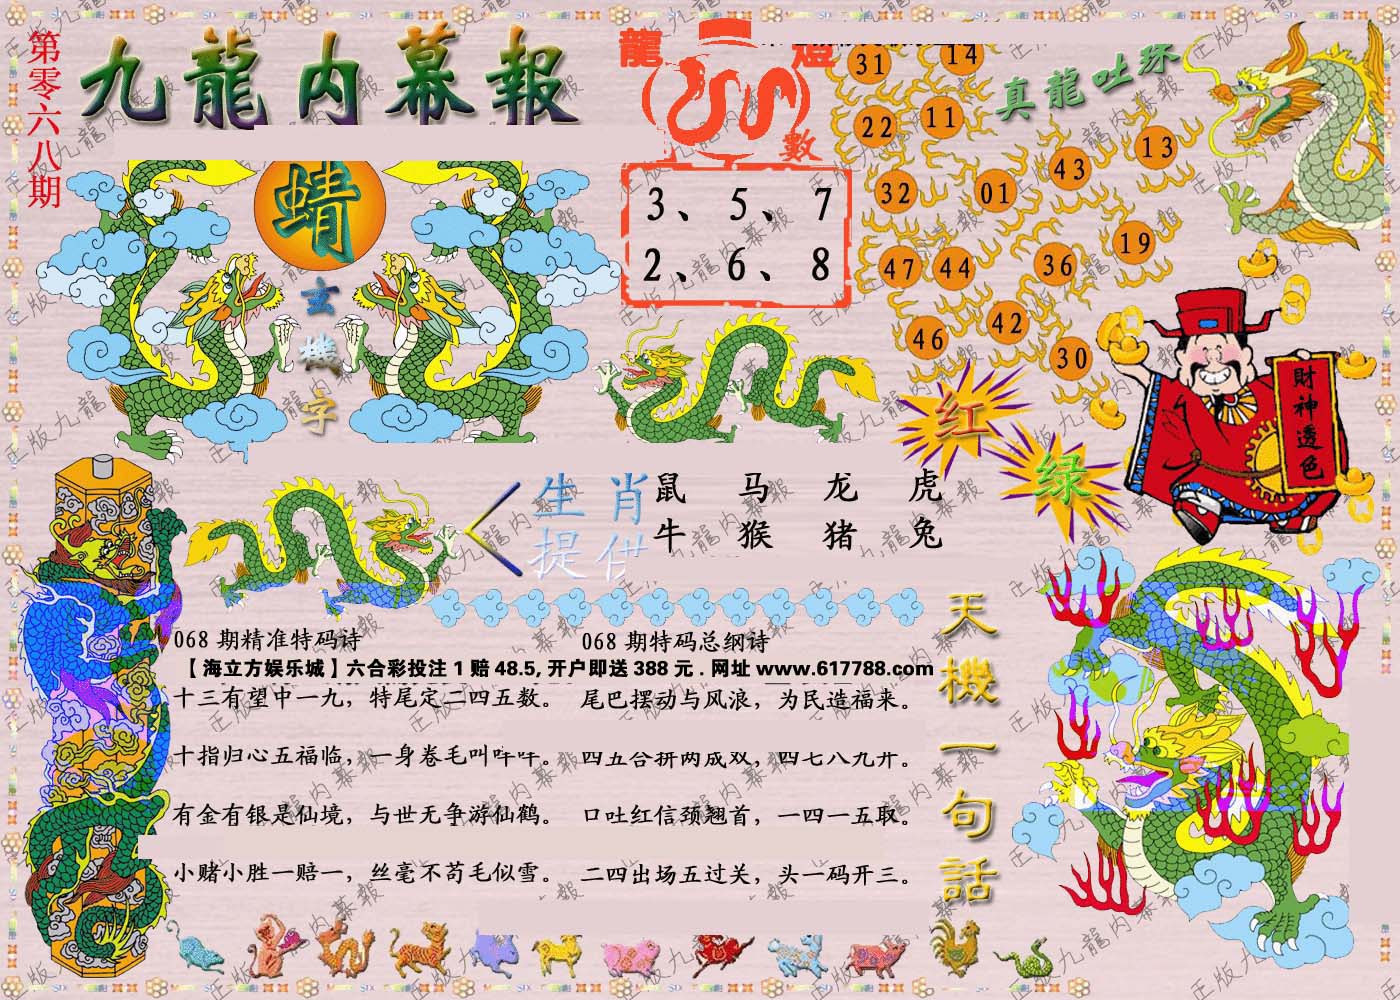 第零六八期
九龍内幕報
蜻
玄機字
龍
數
3、5、7
2、6、8
真龍吐珠
31
14
22
11
13
43
32
01
19
47
44
36
46
42
30
红
绿
財神透色
生肖
提供
鼠 马 龙 虎
牛 猴 猪 兔
天機一句話
068期精准特码诗
【海立方娱乐城】六合彩投注1赔48.5,开户即送388元.网址www.617788.com
十三有望中一九，特尾定二四五数。
十指归心五福临，一身卷毛叫咩咩。
有金有银是仙境，与世无争游仙鹤。
小赌小胜一赔一，丝毫不苟毛似雪。
068期特码总纲诗
尾巴摆动与风浪，为民造福来。
四五合拼两成双，四七八九开。
口吐红信颈翘首，一四一五取。
二四出场五过关，头一码开三。
正版九龍内幕報